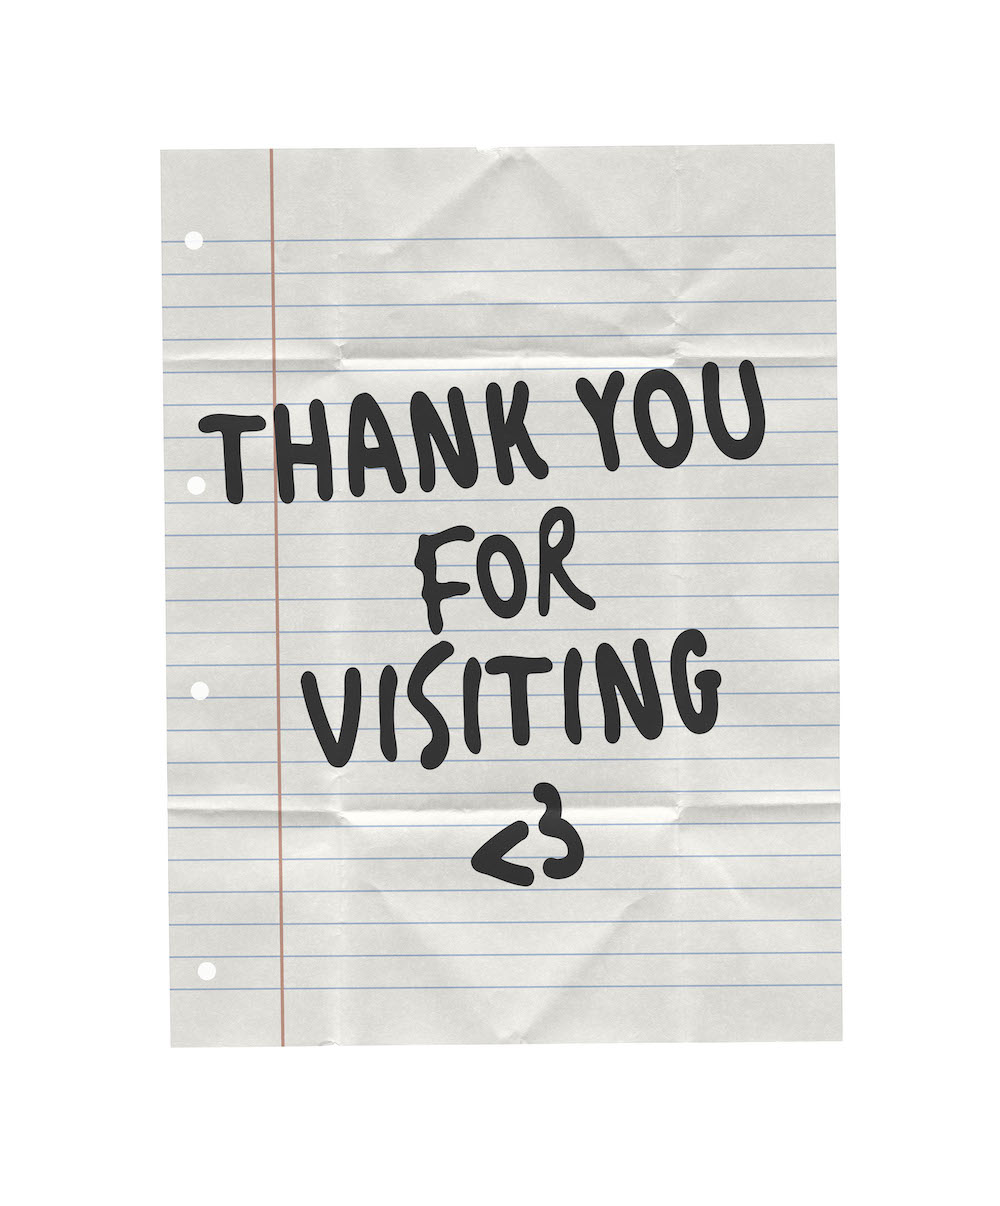 THANK YOU
FOR
VISITING
<3